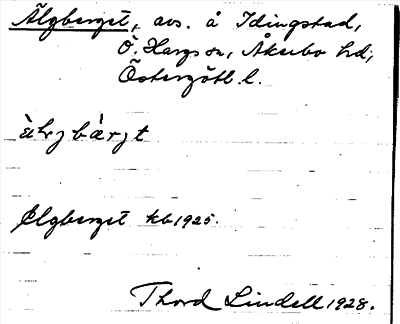 Älgberget, avs. å Idingstad,
Ö. Hargs sn, Åkerbo hd,
Östergötl. l.
Älgberget kb 1925.
Thord Lindell 1928.